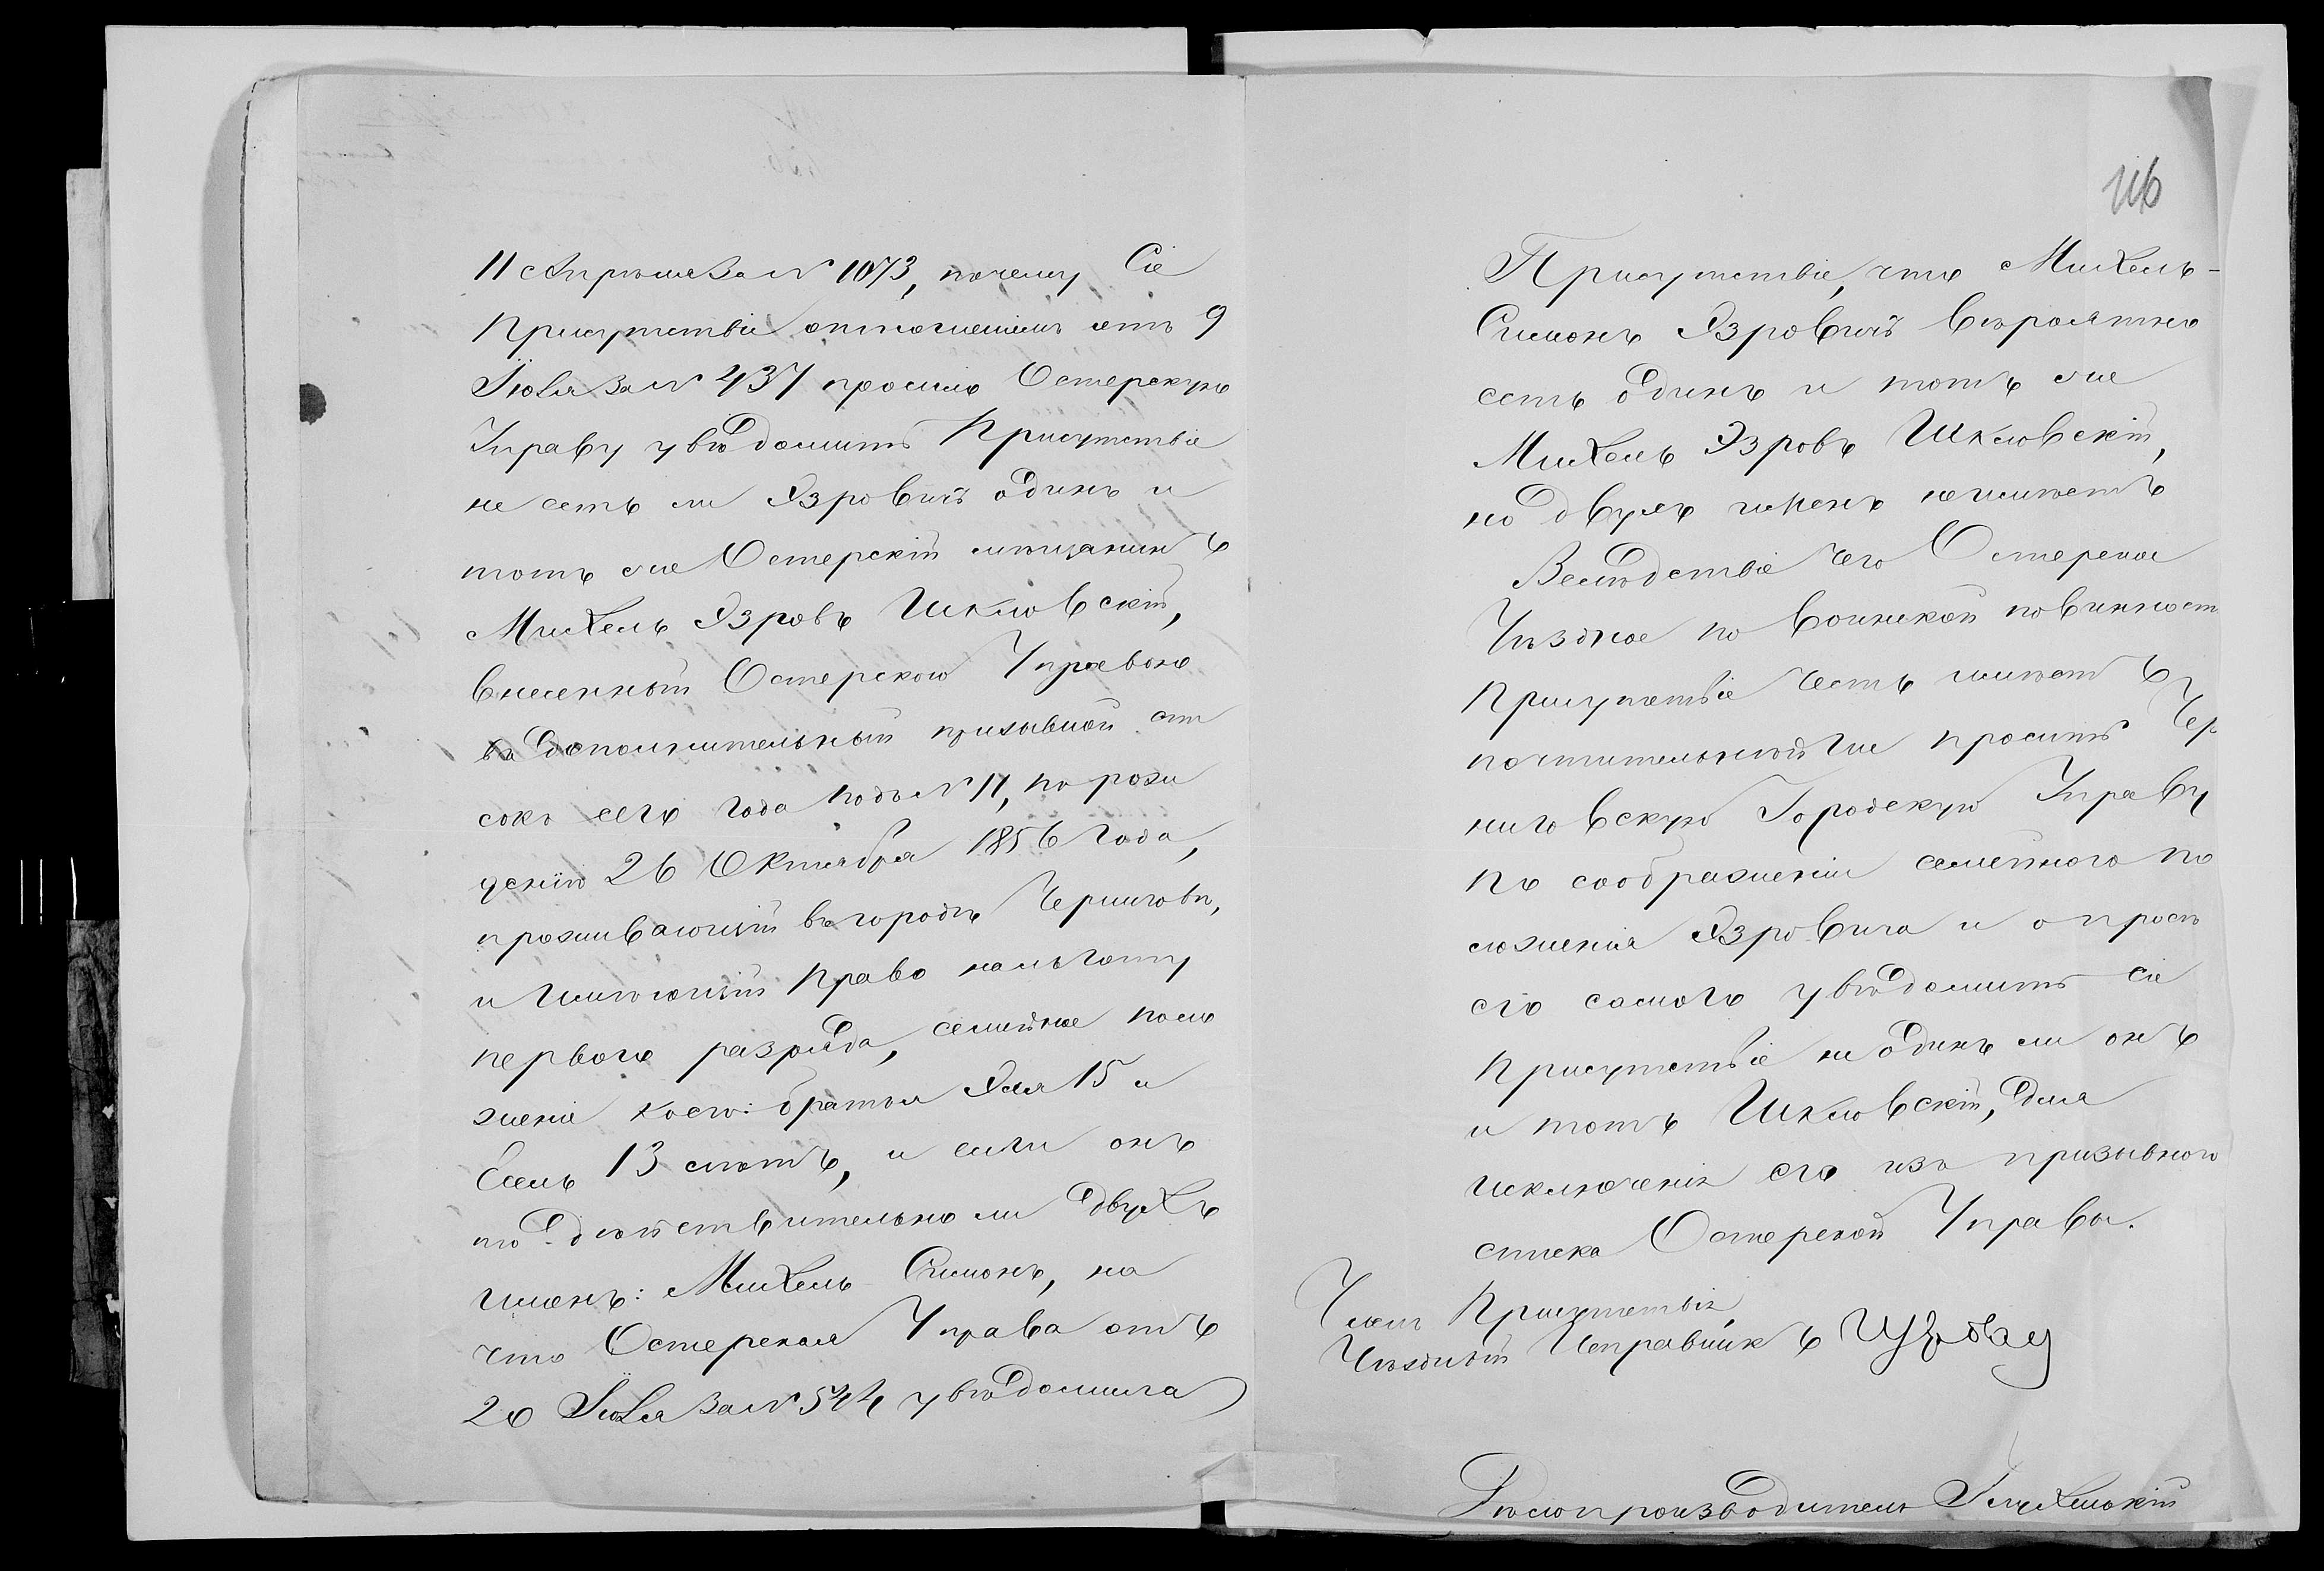 11 Апрѣля за № 1073, почему Сіе
Присутствіе отношеніемъ отъ 9
Іюля за № 437 просило Остерскую
Управу увѣдомить Присутствіе
не есть ли Эзровичъ одинъ и
тотъ же Остерскій мѣщанинъ
Михель Эзровъ Шкловскій,
внесенный Остерскою Управою
въ дополнительный призывной спи
сокъ сего года подъ № 11, по рож
денію 26 Октября 1856 года,
проживающій въ городѣ Черниговѣ,
и имѣющій право на льготу
перваго разряда, семейное поло
женіе коего: братья 15 и
13 лѣтъ, и если онъ
то дѣйствительно ли двухъ
именъ: Михель Симонъ, на
что Остерская Управа отъ
20 Іюля за № 544 увѣдомила
116
Присутствіе, что Михель-
Симонъ Эзровичъ вѣроятно
есть одинъ и тотъ же
Михель Эзровъ Шкловскій,
но двухъ именъ не имѣетъ
Вслѣдствіе чего Остерское
Уѣздное по воинской повинност
Присутствіе честь имѣетъ
почтительнѣйше просить Чер
ниговскую Городскую Управу
по соображеніи семейнаго по
ложенія Эзровича и опросѣ
его самого увѣдомить сіе
Присутствіе не одинъ ли онъ
и тотъ Шкловскій, для
исключенія его изъ призывного
списка Остерской Управы.
Членъ Присутствія,
Уѣздный Исправникъ
Дѣлопроизводитель